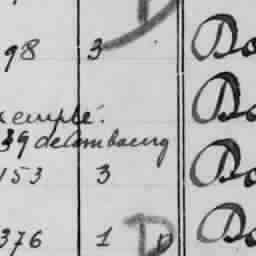 98 3 Do
xempté. Do
39 de Combourg
153 3 Do
376 1 D Do